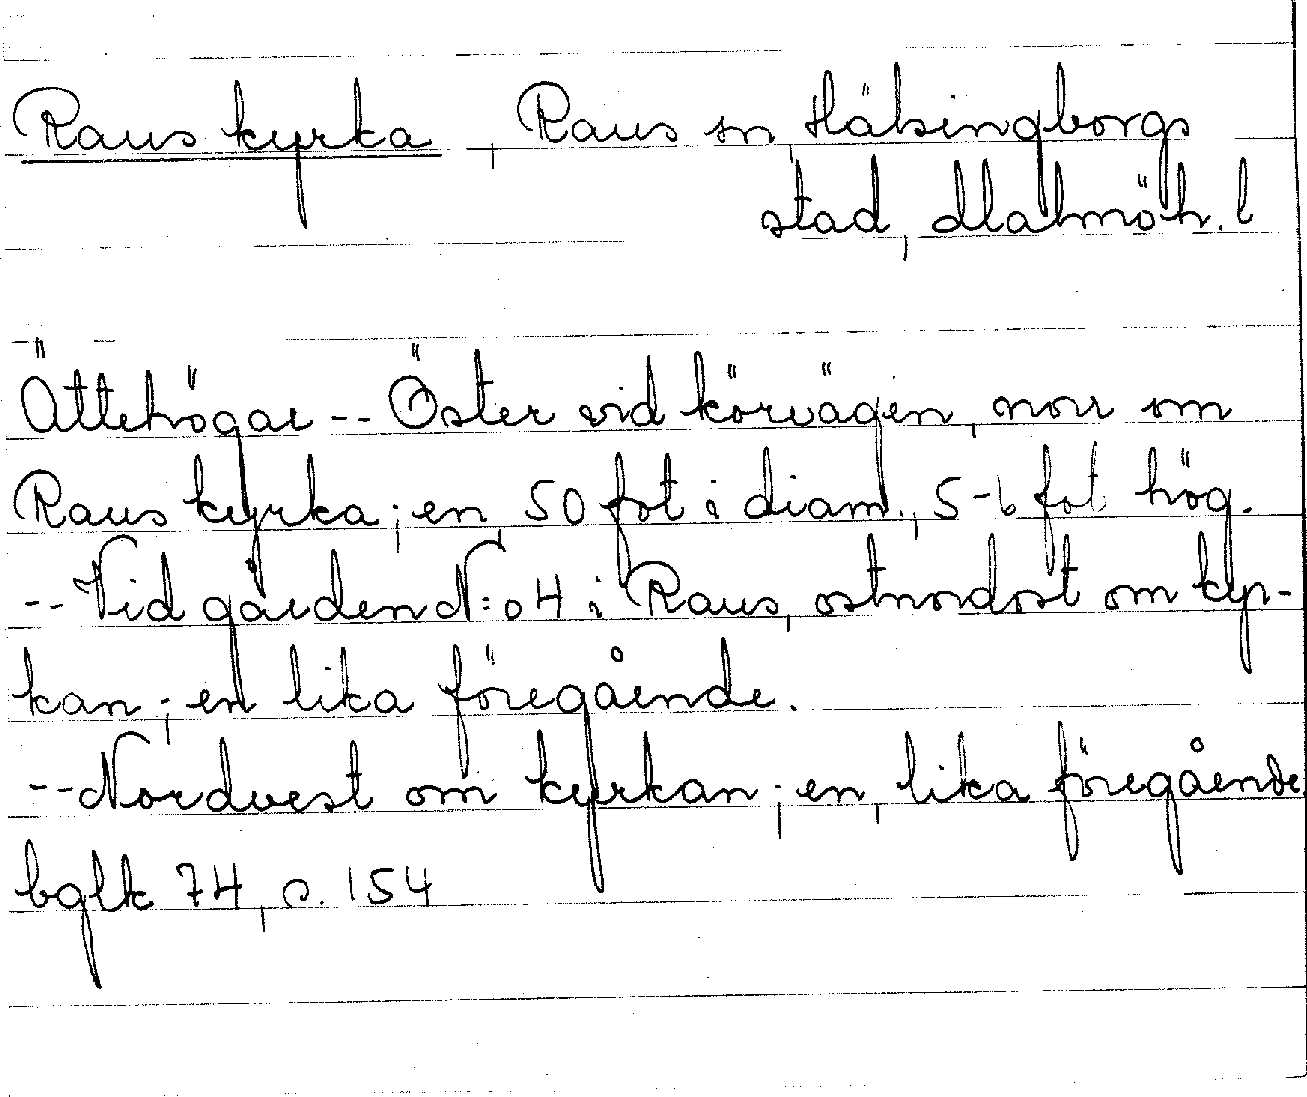 Raus kyrka, Raus sn, Hälsingborgs
stad, Malmöh. l
Ättehögar -- Öster vid körvägen, norr om
Raus kyrka; en, 50 fot i diam., 5-6 fot hög.
-- Vid gården N:o 4 i Raus, ostnordost om kyr-
kan; en lika föregående.
-- Nordvest om kyrkan; en, lika föregående
bglk 74, s. 154